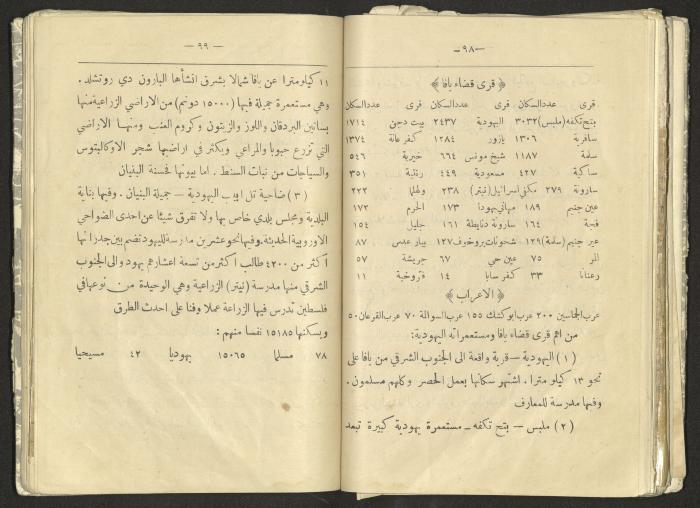 — ٩٨ —
﴿ قرى قضاء يافا ﴾
قرى عدد السكان قرى عدد السكان قرى عدد السكان
بتح تكفه (ملبس) ٣٠٣٢ اليهودية ٢٤٣٧ بيت دجن ١٧١٤
سافرية ١٣٠٦ يازور ١٢٨٤ كفر عانة ١٣٧٤
سلمة ١١٨٧ شيخ مونس ٦٦٤ خيرية ٥٤٦
ساكية ٤٢٧ مسعودية ٤٤٩ رنتية ٣٥١
سارونة ٢٧٩ مكفى اسرائيل (نيتر) ٢٣٨ ولهلما ٢٢٢
عين جنيم ١٨٩ مهاني يهودا ١٧٣ الحرم ١٧٢
فجة ١٦٤ سارونة دنايطة ١٦١ جليل ١٥٤
عير جنيم (سلمة) ١٢٩ شخونات بروخوف ١٢٧ بيار عدس ٨٧
المر ٧٥ عين حي ٦٧ جريشة ٥٧
رعنانا ٣٣ كفر سابا ١٤ فروخية ١١
﴿ الاعراب ﴾
عرب الجماسين ٢٠٠ عرب ابو كشك ١٥٥ عرب السوالة ٧٠ عرب القرعان ٥٠
من اهم قرى قضاء يافا ومستعمراته اليهودية:
(١) اليهودية – قرية واقعة الى الجنوب الشرقي من يافا على
نحو ١٣ كيلو مترا . اشتهر سكانها بعمل الحصر وكلهم مسلمون .
وفيها مدرسة للمعارف
(٢) ملبس – بتح تكفه – مستعمرة يهودية كبيرة تبعد
— ٩٩ —
١١ كيلو مترا عن يافا شمالا بشرق انشأها البارون دي روتشلد .
وهي مستعمرة جميلة فيها (١٥٠٠٠ دونم) من الاراضي الزراعية منها
بساتين البردقان واللوز والزيتون وكروم العنب ومنها الاراضي
التي تزرع حبوبا والمراعي ويكثر في اراضيها شجر الاوكاليبتوس
والسياجات من نبات السنط . اما بيوتها فحسنة البنيان
(٣) ضاحية تل ابيب اليهودية – جميلة البنيان . وفيها بناية
البلدية ومجلس بلدي خاص بها ولا تفرق شيئا عن احدى الضواحي
الاوروبية الحديثة . وفيها نحو عشرين مدرسة لليهود تضم بين جدرانها
أكثر من ٤٢٠٠ طالب اكثر من تسعة اعشارهم يهود والى الجنوب
الشرقي منها مدرسة (نيتر) الزراعية وهي الوحيدة من نوعها في
فلسطين تدرس فيها الزراعة عملا وفنا على احدث الطرق
ويسكنها ١٥١٨٥ نفسا منهم :
٧٨ مسلما ١٥٠٦٥ يهوديا ٤٢ مسيحيا